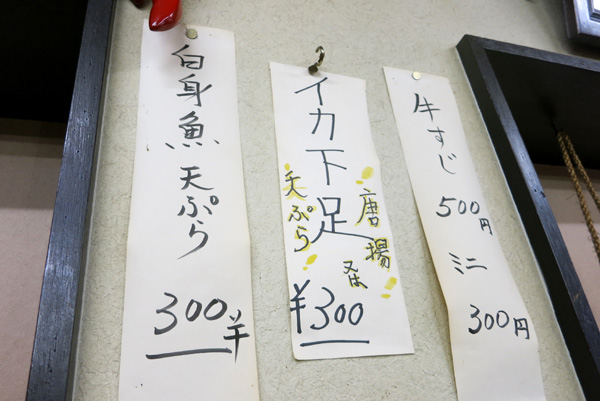 牛すじ
500円
ミニ
300円
イカ下足
唐揚
又は
天ぷら
¥300
白身魚
天ぷら
300¥